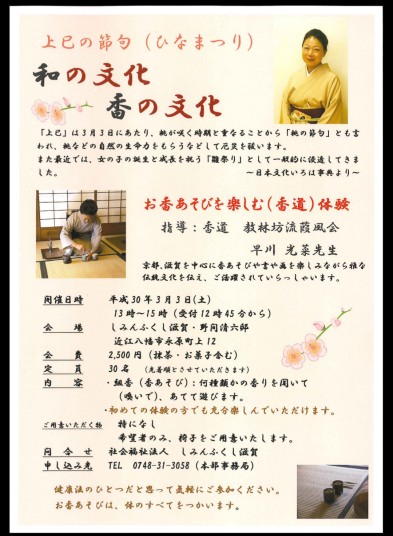 上巳の節句（ひなまつり）
和の文化
香の文化
「上巳」は３月３日にあたり、桃が咲く時期と重なることから「桃の節句」とも言
われ、桃などの自然の生命力をもらうなどして厄災を祓います。
また最近では、女の子の誕生と成長を祝う「雛祭り」として一般的に浸透してきま
した。　～日本文化いろは事典より～
お香あそびを楽しむ（香道）体験
指導：香道　教林坊流霞風会
早川　光菜先生
京都、滋賀を中心に香あそびや書や画を楽しみながら雅な
伝統文化を伝え、ご活躍されていらっしゃいます。
開催日時　平成30年３月３日(土)
13時～15時（受付12時45分から）
会　場　しみんふくし滋賀・野間清六邸
近江八幡市永原町上12
会　費　2,500円（抹茶・お菓子含む）
定　員　30名　（先着順とさせていただきます）
内　容　・組香（香あそび）：何種類かの香りを聞いて
（嗅いで）、あてて遊びます。
・初めての体験の方でも充分楽しんでいただけます。
ご用意いただく物　特になし
希望者のみ、椅子をご用意いたします。
問　合　せ　社会福祉法人　しみんふくし滋賀
申し込み先　TEL　0748-31-3058（本部事務局）
健康法のひとつだと思って気軽にご参加ください。
お香あそびは、体のすべてをつかいます。